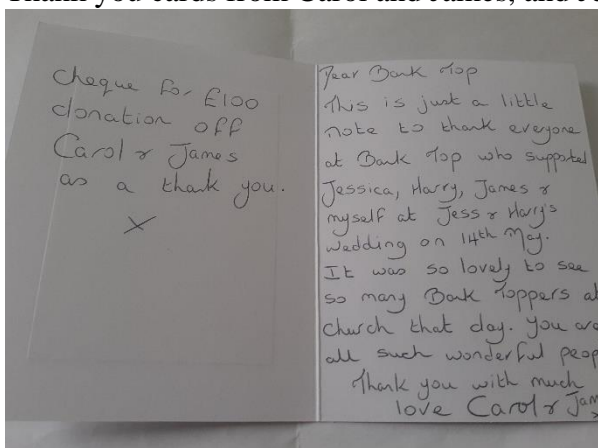 Thank you cards from Carol and James, and
cheque for £100
donation off
Carol & James
as a thank you.
X
Dear Bank Top
This is just a little
note to thank everyone
at Bank Top who supported
Jessica, Harry, James &
myself at Jess & Harry's
wedding on 14th May.
It was so lovely to see
so many Bank Toppers at
church that day. You are
all such wonderful peop
Thank you with much
love Carol & Jam